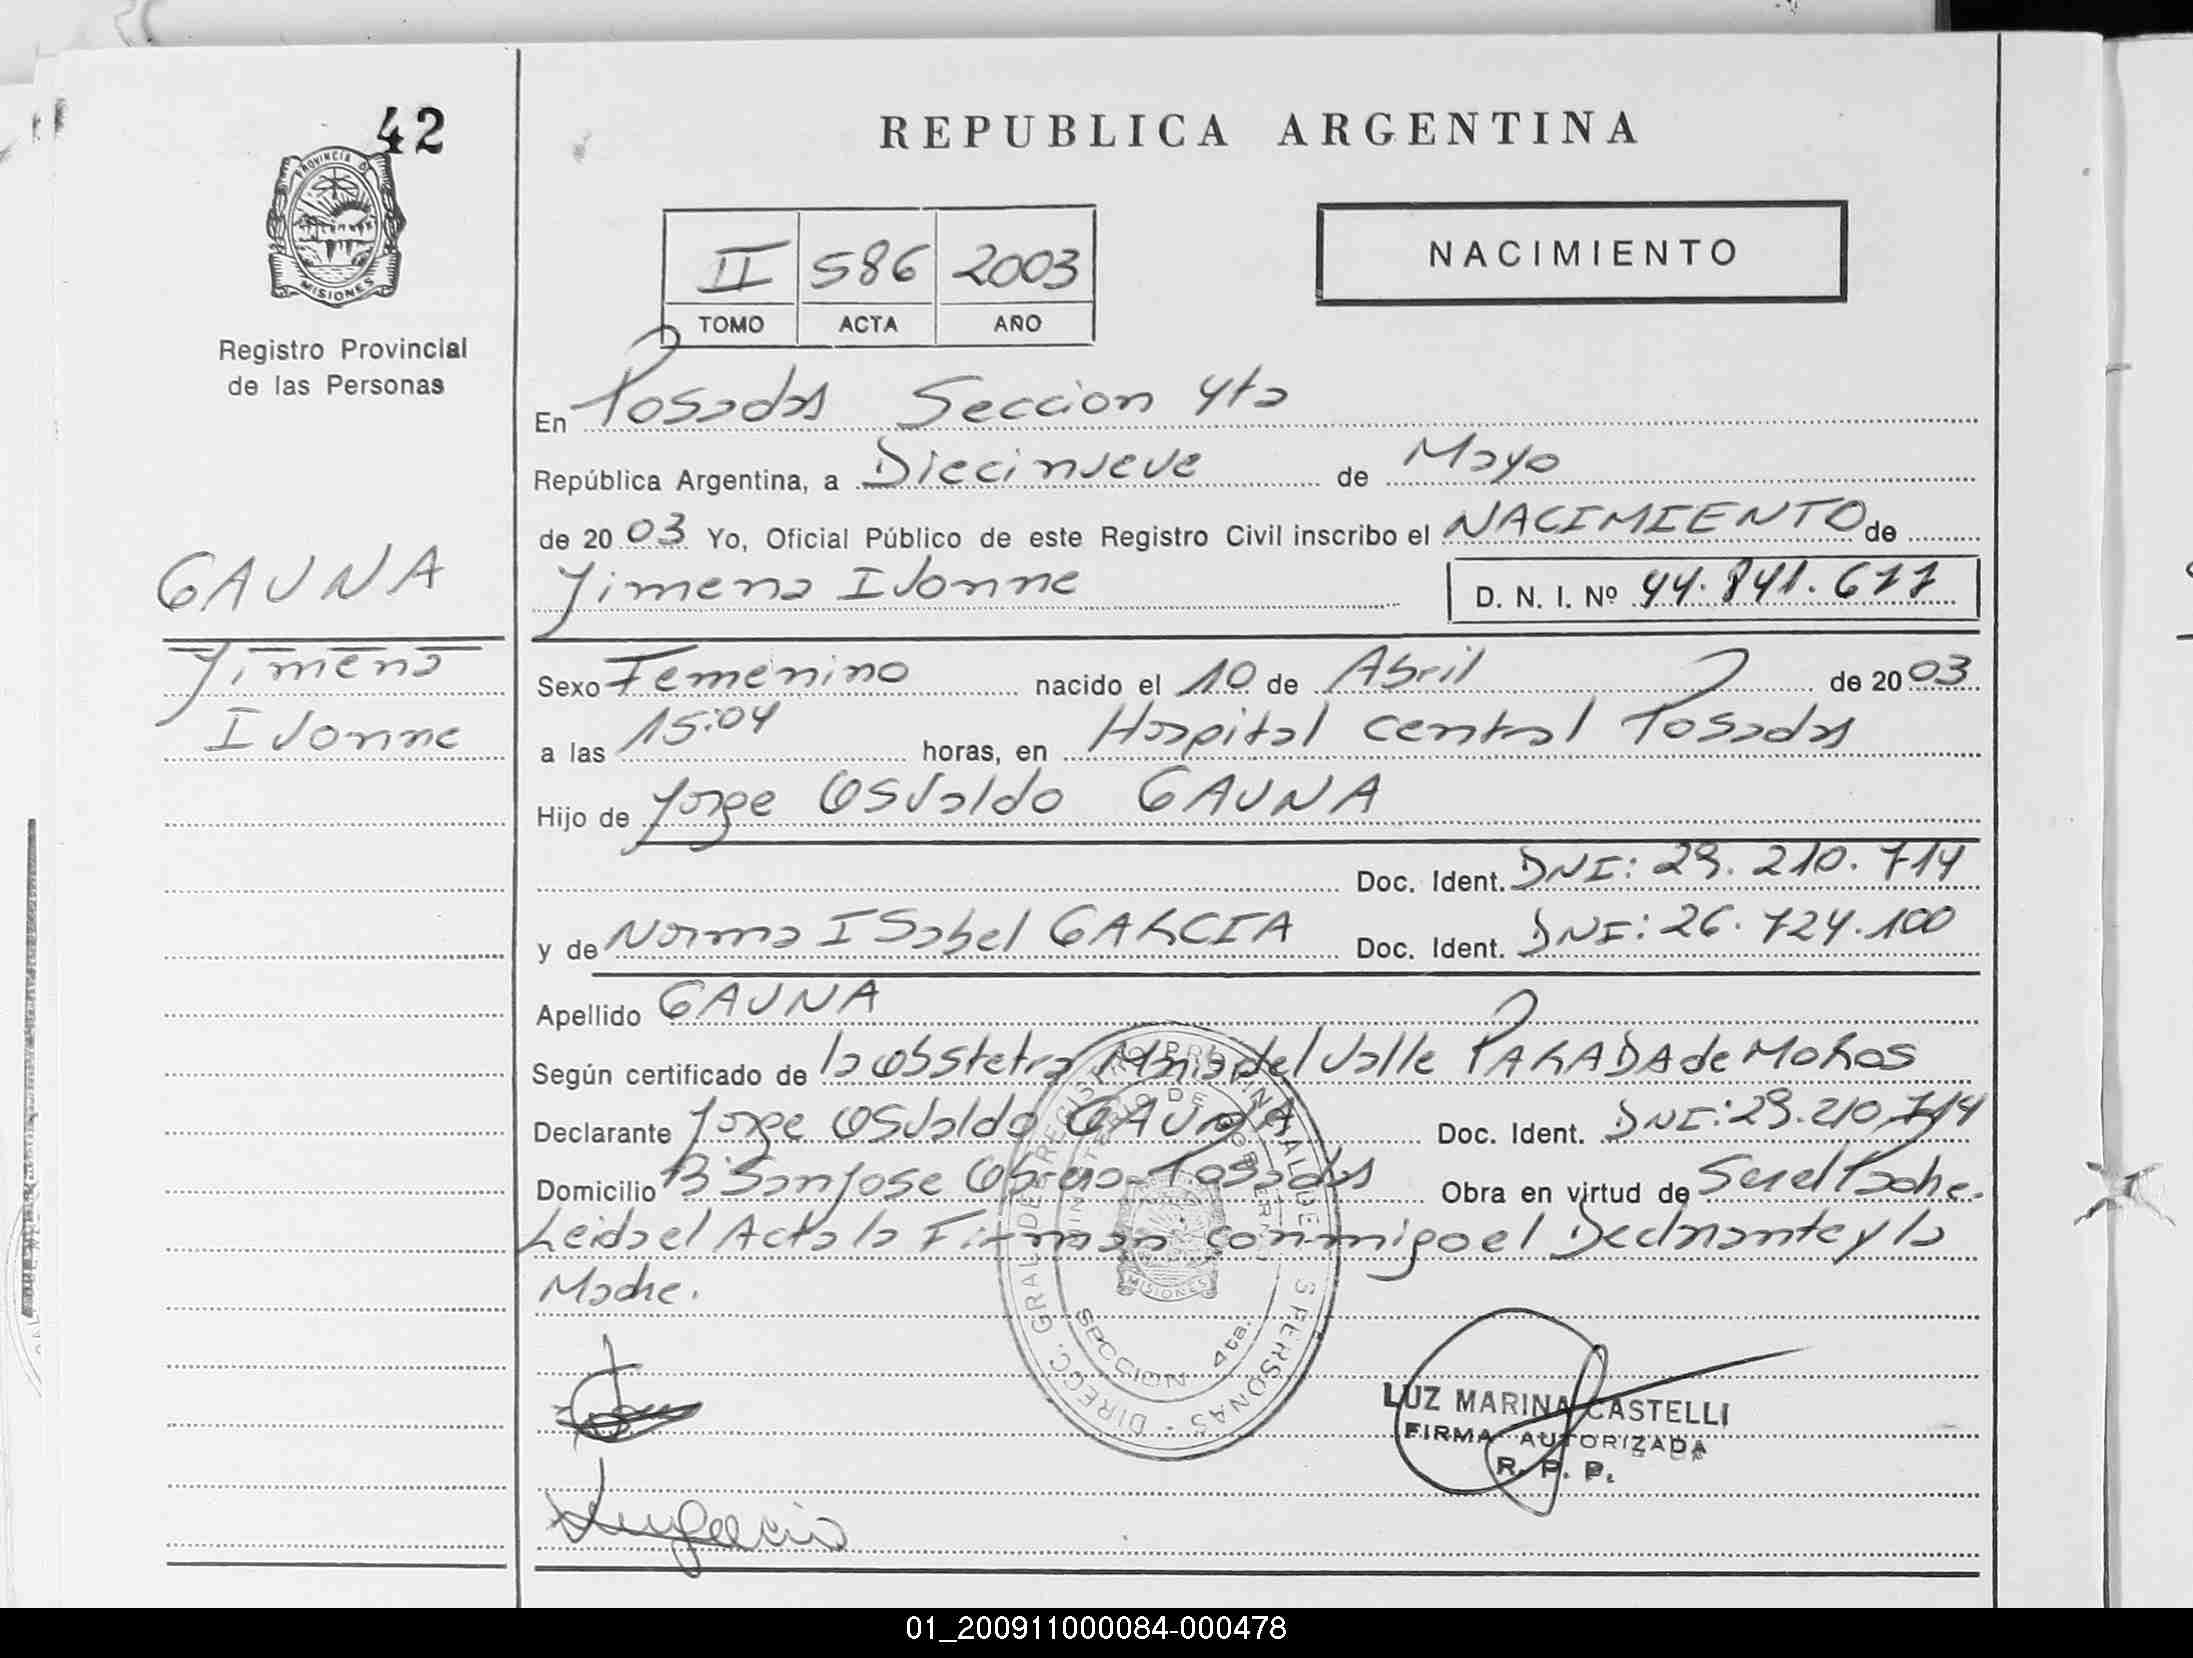 42
PROVINCIA DE
MISIONES
Registro Provincial
de las Personas
GAUNA
Jimena
Ivonne
REPUBLICA ARGENTINA
II 586 2003
TOMO ACTA AÑO
NACIMIENTO
En Posadas Seccion 4ta
República Argentina, a Diecinueve de Mayo
de 2003 Yo, Oficial Público de este Registro Civil inscribo el NACIMIENTO de
Jimena Ivonne D. N. I. Nº 44.841.677
Sexo Femenino nacido el 10 de Abril de 2003
a las 15:04 horas, en Hospital Central Posadas
Hijo de Jorge Osvaldo GAUNA
Doc. Ident. DNI: 29.210.714
y de Norma Isabel GARCIA Doc. Ident. DNI: 26.724.100
Apellido GAUNA
Según certificado de la obstetra Maria del Valle PARADA de MOROS
Declarante Jorge Osvaldo GAUNA Doc. Ident. DNI: 29.210.714
Domicilio B° San Jose Obrero - Posadas Obra en virtud de Ser el Padre.
Leida el Acta la Firman conmigo el Declarante y la
Madre.
SECCION 4ta.
MISIONES
LUZ MARINA CASTELLI
FIRMA AUTORIZADA
R. P. P.
01_200911000084-000478